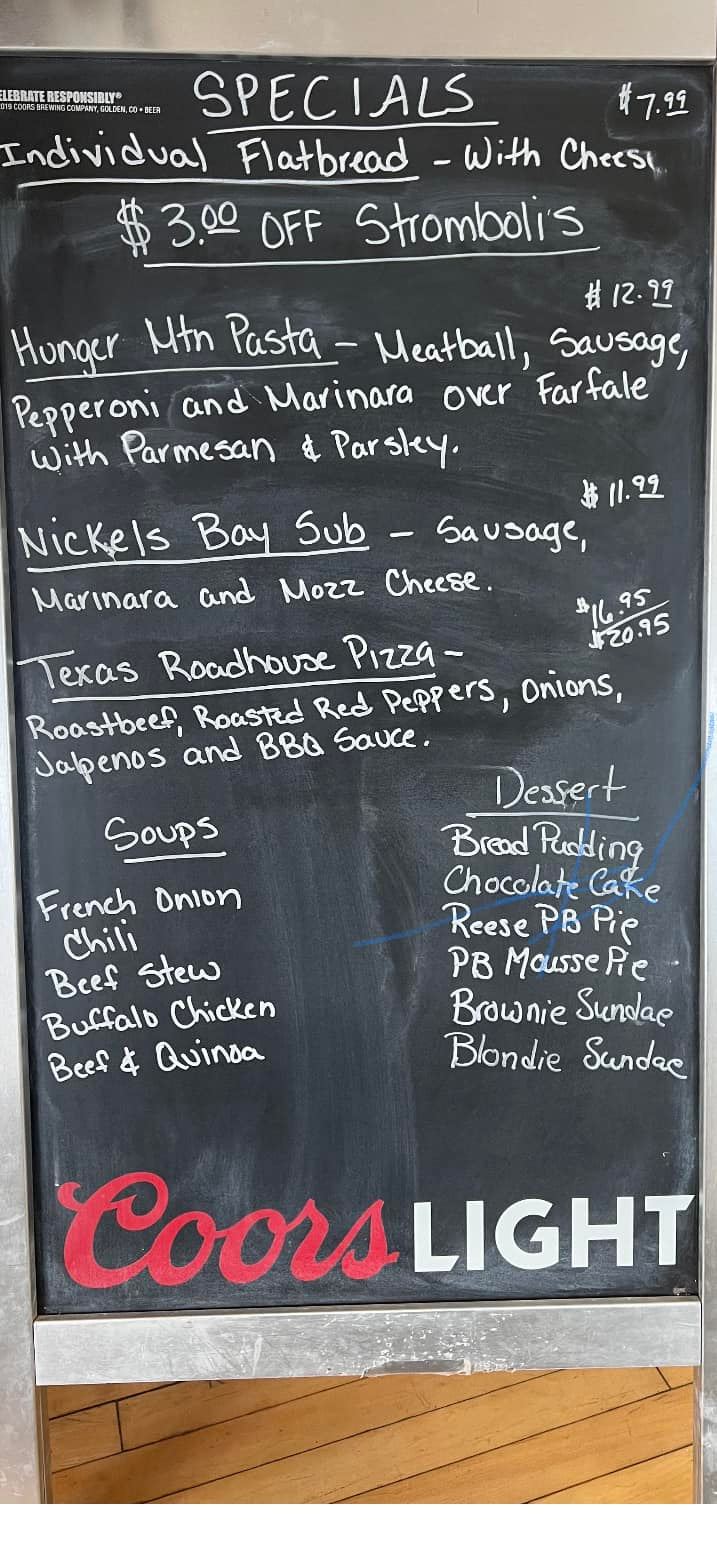 ELEBRATE RESPONSIBLY®
019 COORS BREWING COMPANY, GOLDEN, CO • BEER
SPECIALS
$7.99
Individual Flatbread - With Cheese
$3.00 OFF Stromboli's
$12.99
Hunger Mtn Pasta - Meatball, Sausage,
Pepperoni and Marinara over Farfale
With Parmesan & Parsley.
$11.99
Nickels Bay Sub - Sausage,
Marinara and Mozz Cheese.
$16.95
$20.95
Texas Roadhouse Pizza -
Roastbeef, Roasted Red Peppers, Onions,
Jalpenos and BBQ Sauce.
Soups
French Onion
Chili
Beef Stew
Buffalo Chicken
Beef & Quinoa
Dessert
Bread Pudding
Chocolate Cake
Reese PB Pie
PB Mousse Pie
Brownie Sundae
Blondie Sundae
Coors LIGHT